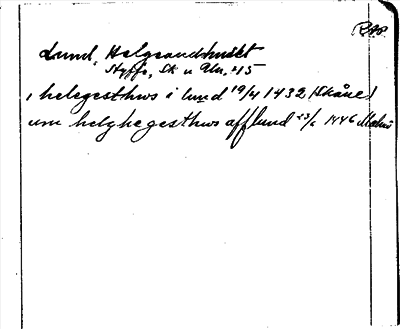 Lund, Helgeandhuset
i helegesthws i lund 19/4 1432 (Skåne)
um helghegesthws aff lund 23/6 1446 Malmö